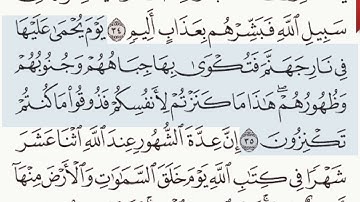 سَبِيلِ ٱللَّهِ فَبَشِّرْهُم بِعَذَابٍ أَلِيمٍ ٣٤ يَوْمَ يُحْمَىٰ عَلَيْهَا
فِى نَارِ جَهَنَّمَ فَتُكْوَىٰ بِهَا جِبَاهُهُمْ وَجُنُوبُهُمْ
وَظُهُورُهُمْ ۖ هَٰذَا مَا كَنَزْتُمْ لِأَنفُسِكُمْ فَذُوقُوا۟ مَا كُنتُمْ
تَكْنِزُونَ ٣٥ إِنَّ عِدَّةَ ٱلشُّهُورِ عِندَ ٱللَّهِ ٱثْنَا عَشَرَ
شَهْرًا فِى كِتَٰبِ ٱللَّهِ يَوْمَ خَلَقَ ٱلسَّمَٰوَٰتِ وَٱلْأَرْضَ مِنْهَآ